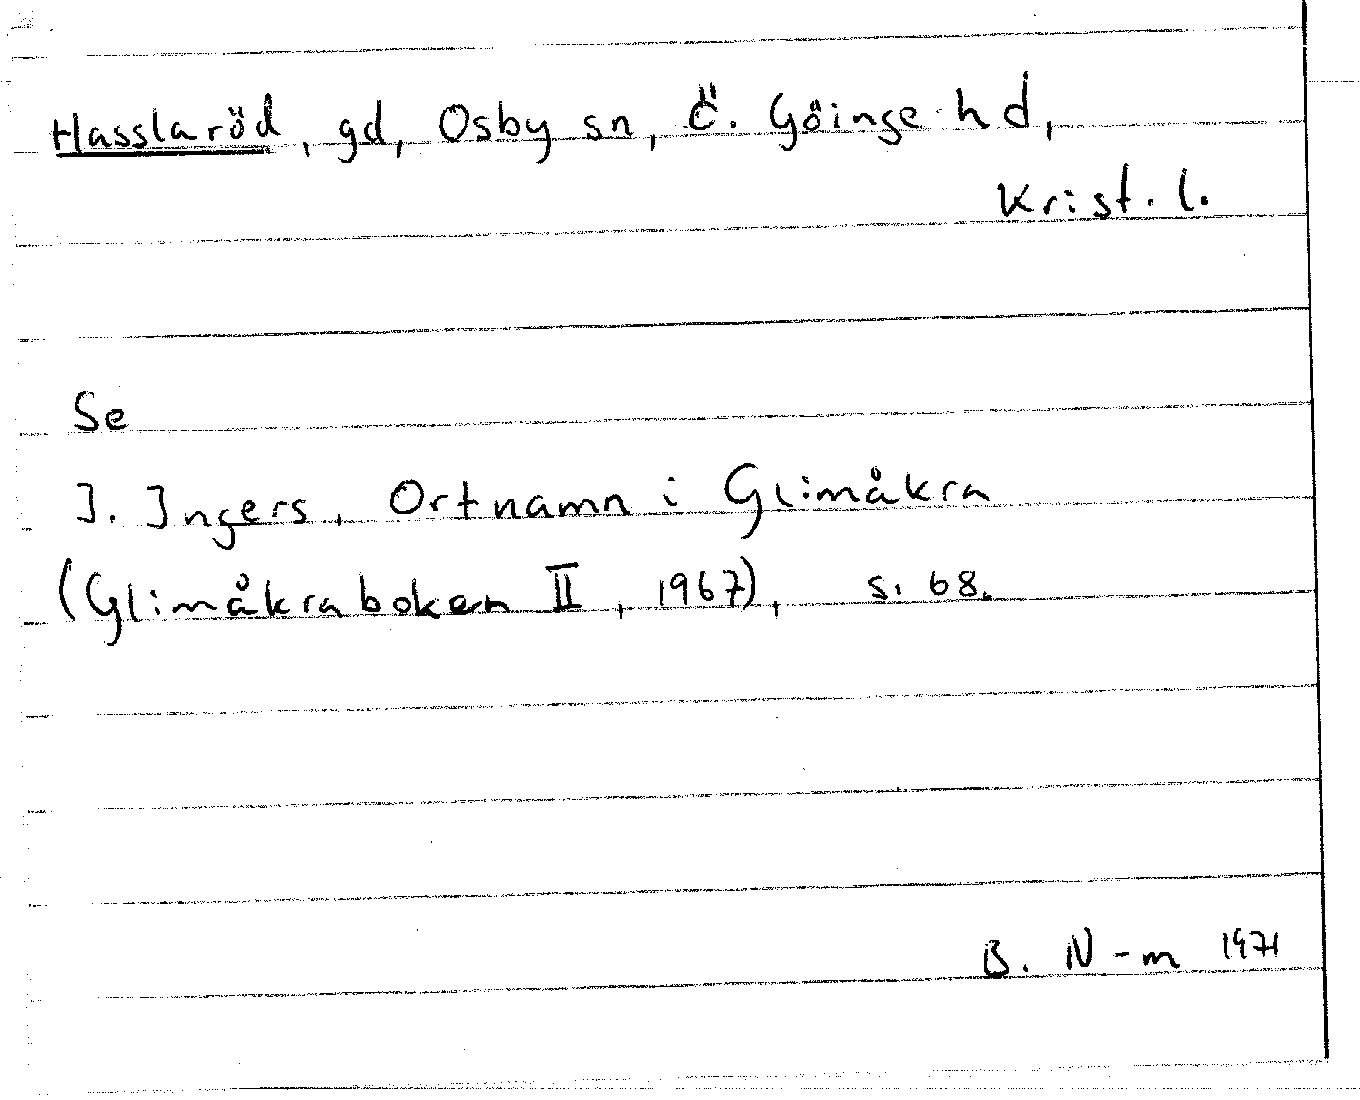 Hasslaröd, gd, Osby sn, Ö. Göinge hd,
Krist. l.
Se
I. Ingers, Ortnamn i Glimåkra
(Glimåkraboken II, 1967), s. 68.
B. N-m 1971